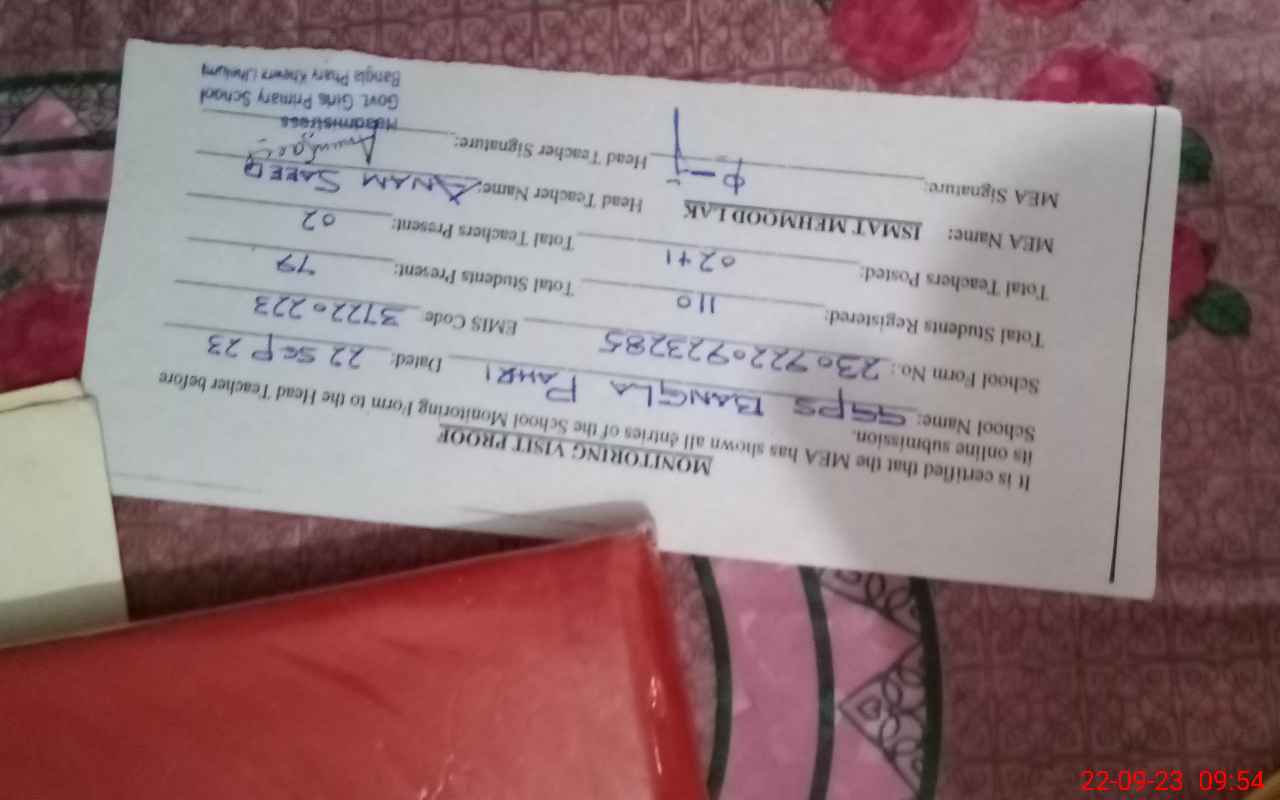 MONITORING VISIT PROOF
It is certified that the MEA has shown all entries of the School Monitoring Form to the Head Teacher before
its online submission.
School Name: GGPS BANGLA PAHRI Dated: 22 SEP 23
School Form No.: 2309722092328S EMIS Code: 37220223
Total Students Registered: 110 Total Students Present: 79
Total Teachers Posted: 02+1 Total Teachers Present: 02
MEA Name: ISMAT MEHMOOD LAK Head Teacher Name: ANAM SAEED
MEA Signature: Head Teacher Signature:
Headmistress
Govt. Girls Primary School
Bangla Phary Khewra (Jhelum)
22-09-23 09:54